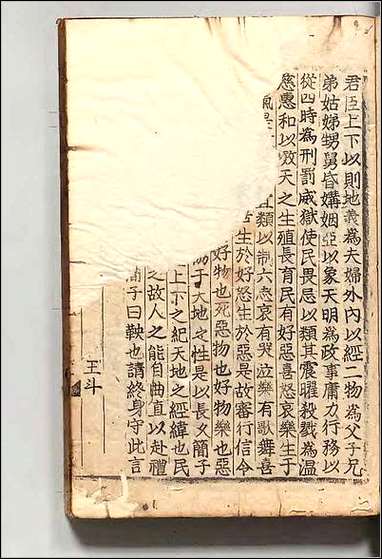 君臣上下以則地義為夫婦外內以經二物為父子兄
弟姑姊甥舅昏媾姻亞以象天明為政事庸力行務以
從四時為刑罰威獄使民畏忌以類其震曜殺戮為溫
慈惠和以效天之生殖長育民有好惡喜怒哀樂生于
氣是宜類以制六志哀有哭泣樂有歌舞喜
喜生於好怒生於惡是故審行信令
好物也死惡物也好物樂也惡
協于天地之性是以長久簡子
上下之紀天地之經緯也民
之故人之能自曲直以赴禮
簡子曰鞅也請終身守此言
王斗